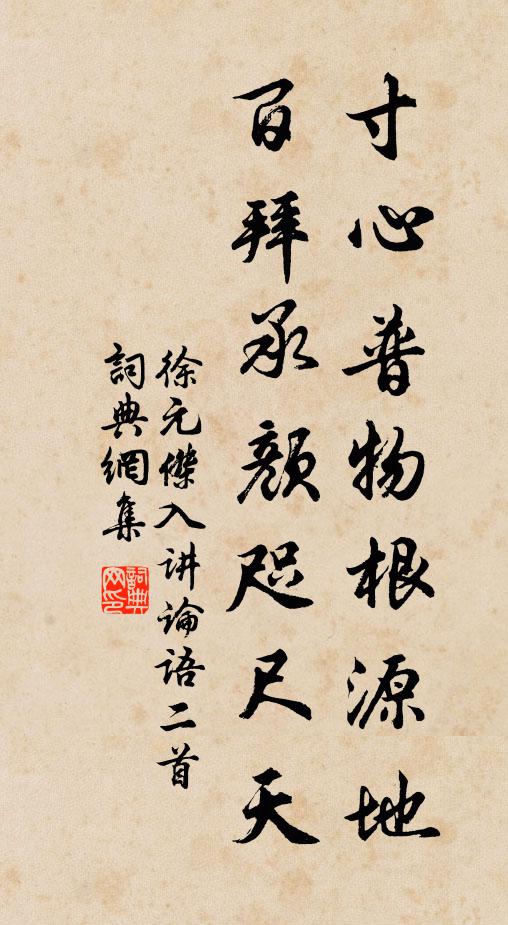 寸心普物根源地
百拜承顏咫尺天
徐元傑入讲論语二首
詞典網集
詞典
网印